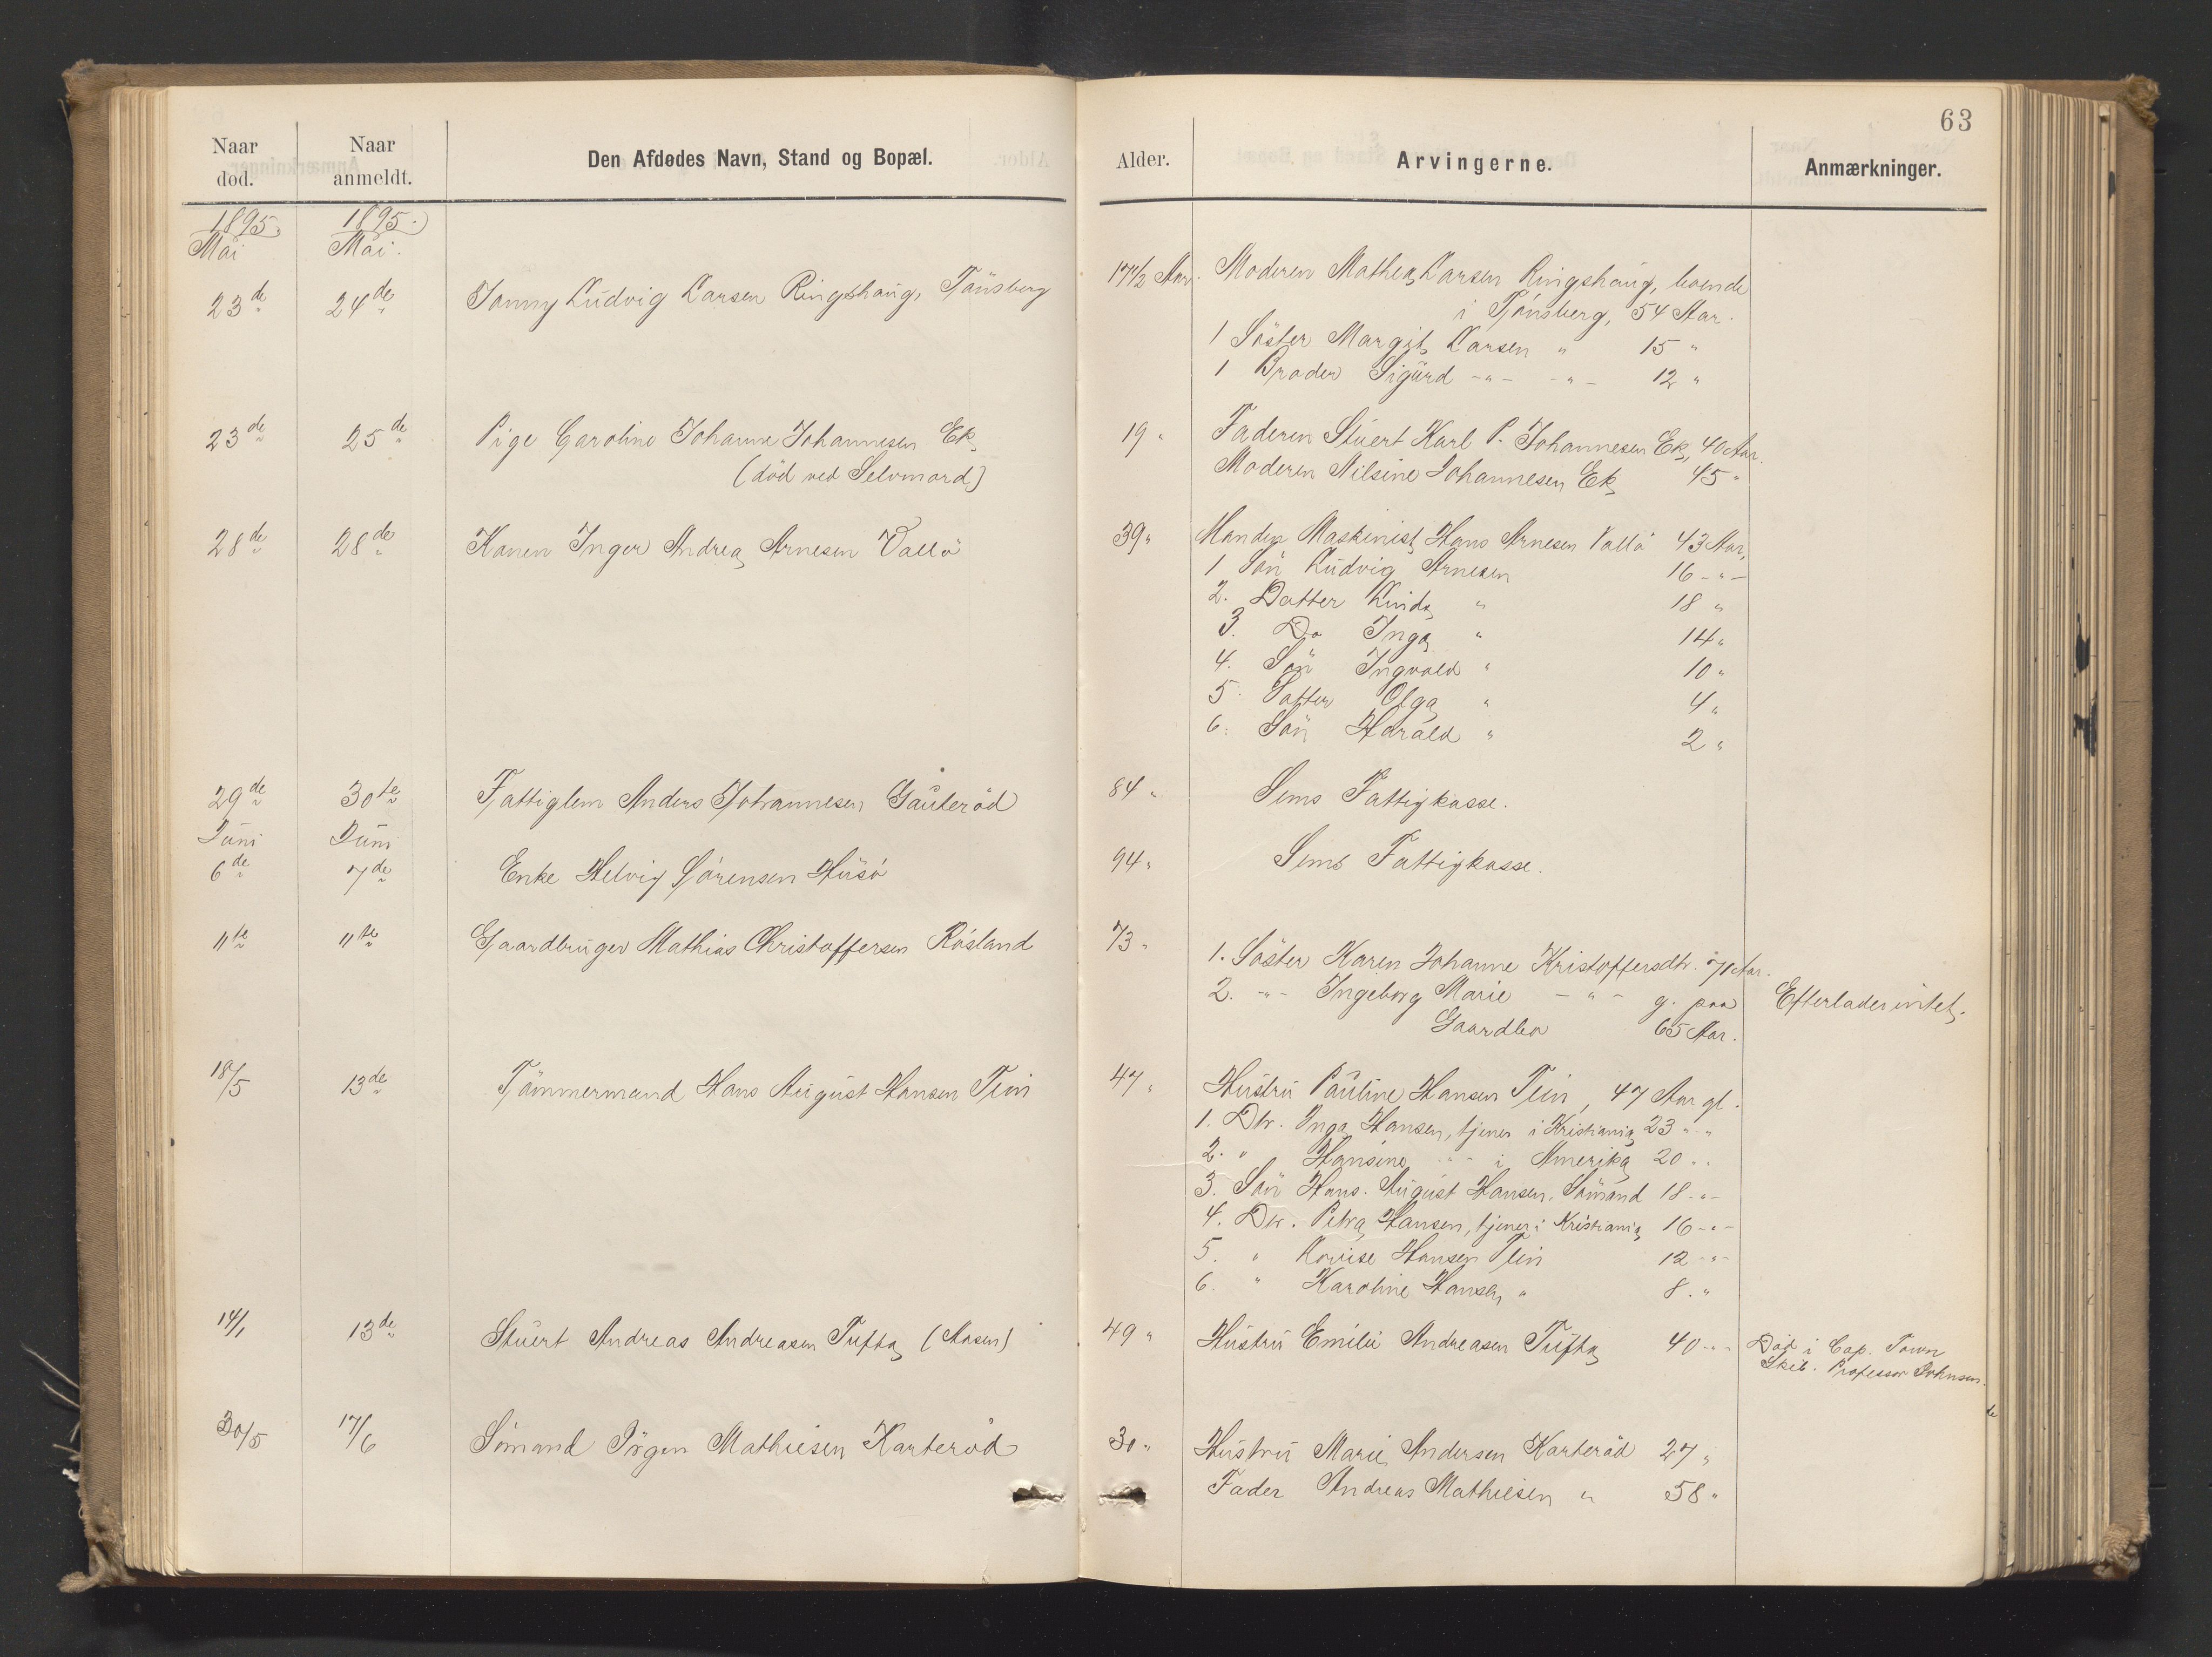 63
Naar død. Naar anmeldt. Den Afdødes Navn, Stand og Bopæl. Alder. Arvingerne. Anmærkninger.
1895. 1895.
Mai Mai.
23de 24de Janny Ludvig Larsen Ringshaug, Tønsberg 17 1/2 Aar. Moderen Mathea Larsen Ringshaug, boende
i Tønsberg, 54 Aar.
1 Søster Margit Larsen " 15 "
1 Broder Sigurd -"- -"- 12 "
23de 25de Pige Caroline Johanne Johannesen Ek 19 " Faderen Stuert Karl P. Johannesen Ek, 40 Aar.
(død ved Selvmord) Moderen Nilsine Johannesen Ek 45 "
28de 28de Konen Inger Andrea Arnesen Vallø 39 " Manden Maskinist Hans Arnesen Vallø 43 Aar,
1 Søn Ludvig Arnesen 16 -"-
2. Datter " 18 "
3. Do Inga " 14 "
4. Søn Ingvald " 10 "
5. Datter Olga " 4 "
6. Søn Harald " 2 "
29de 30te Fattiglem Anders Johannesen Gauterød 84 " Sems Fattigkasse.
Juni Juni
6de 7de Enke Helvig Sørensen Husø 94 " Sems Fattigkasse.
11te 11te Gaardbruger Mathias Christoffersen Røsland 73 "
1. Søster Karen Johanne Kristoffersdtr. 70 Aar.
2. -"- Ingeborg Marie -"- g. paa Efterlader intet.
Gaardbo 65 Aar.
18/5 13de Tømmermand Hans August Hansen Tein 47 " Hustru Pauline Hansen Tein, 47 Aar gl.
1. Dtr. Inga Hansen, tjener i Kristiania 23 " "
2. " Hansine " i Amerika 20 " "
3. Søn Hans August Hansen, Sømand 18 -"-
4. Dtr. Petra Hansen, tjener i Kristiania 16 -"-
5. " Lovise Hansen Tein 12 -"-
6. " Karoline Hansen " 8. "
14/1 13de Stuert Andreas Andreasen Tufta (Aasen) 49 " Hustru Emilie Andreasen Tufta 40 -"- Død i Cap. Town
Skib. Professor Johnsen.
30/5 17/6 Sømand Jørgen Mathiesen Karterød 30 " Hustru Marie Andersen Karterød 27 "
Fader Andreas Mathiesen " 58 "